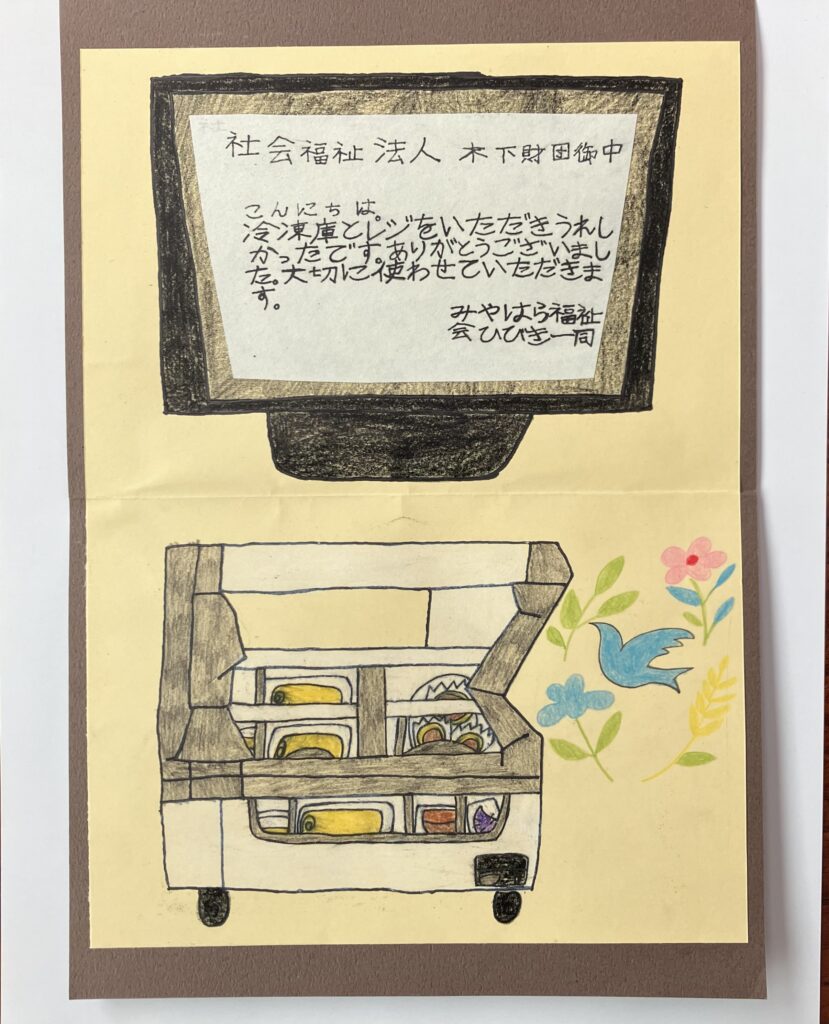 社会福祉法人 木下財団御中
こんにちは。
冷凍庫とレジをいただきうれし
かったです。ありがとうございまし
た。大切に使わせていただきま
す。
みやはら福祉
会ひびき一同